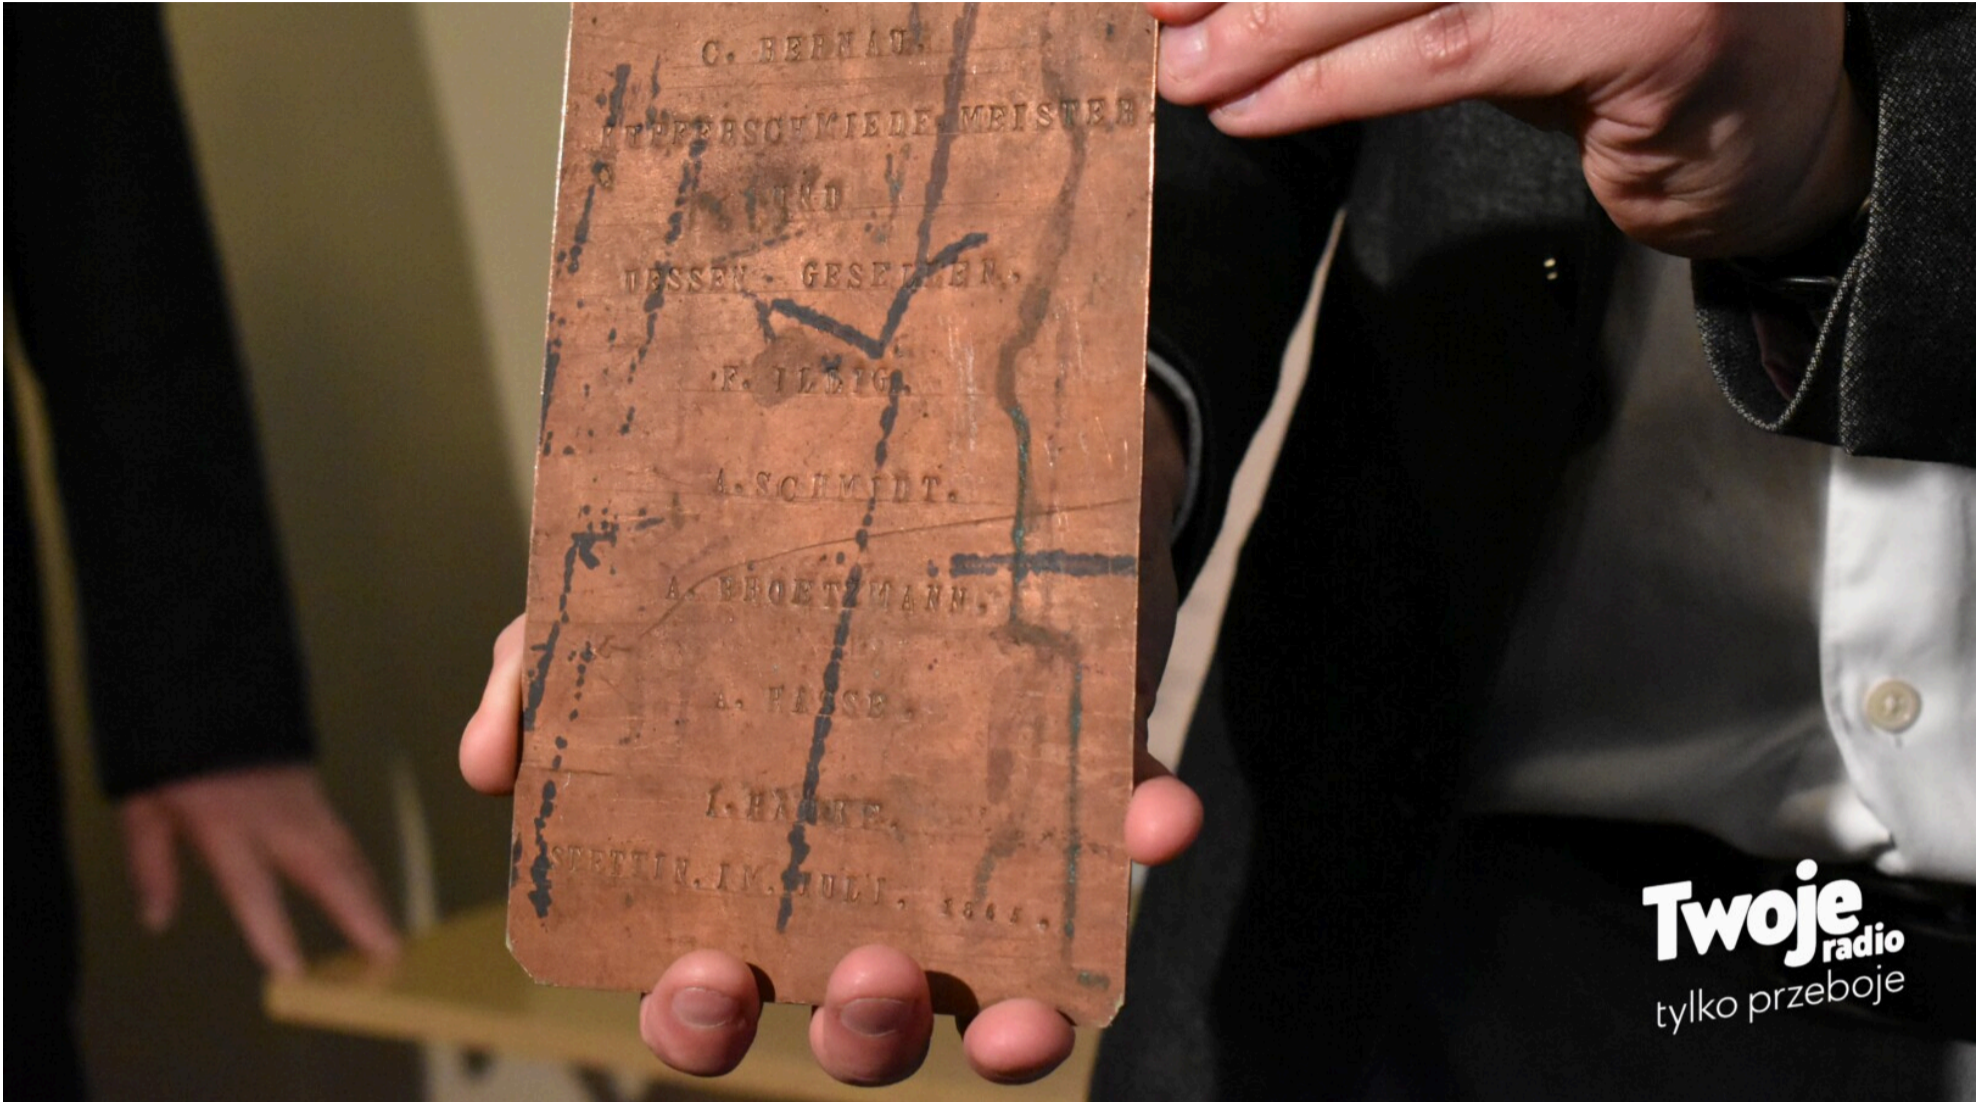 C. BERNAU.
KUPFERSCHMIEDE MEISTER
UND
DESSEN GESELLEN.
F. ILLIG.
A. SCHMIDT.
A. BROETZMANN.
A. HASSE.
STETTIN. IM. JULI.
Twoje
radio
tylko przeboje